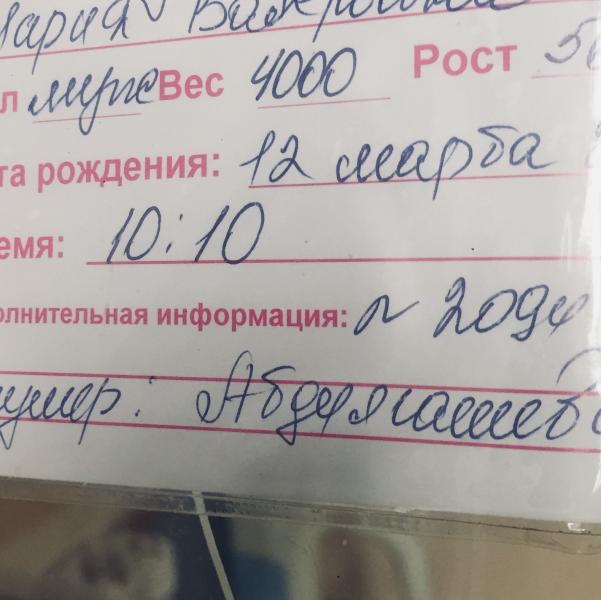 Мария Валерьевна
л муж Вес 4000 Рост 5
та рождения: 12 марта
емя: 10:10
олнительная информация: ~ 209
ушер: Абдулгашев